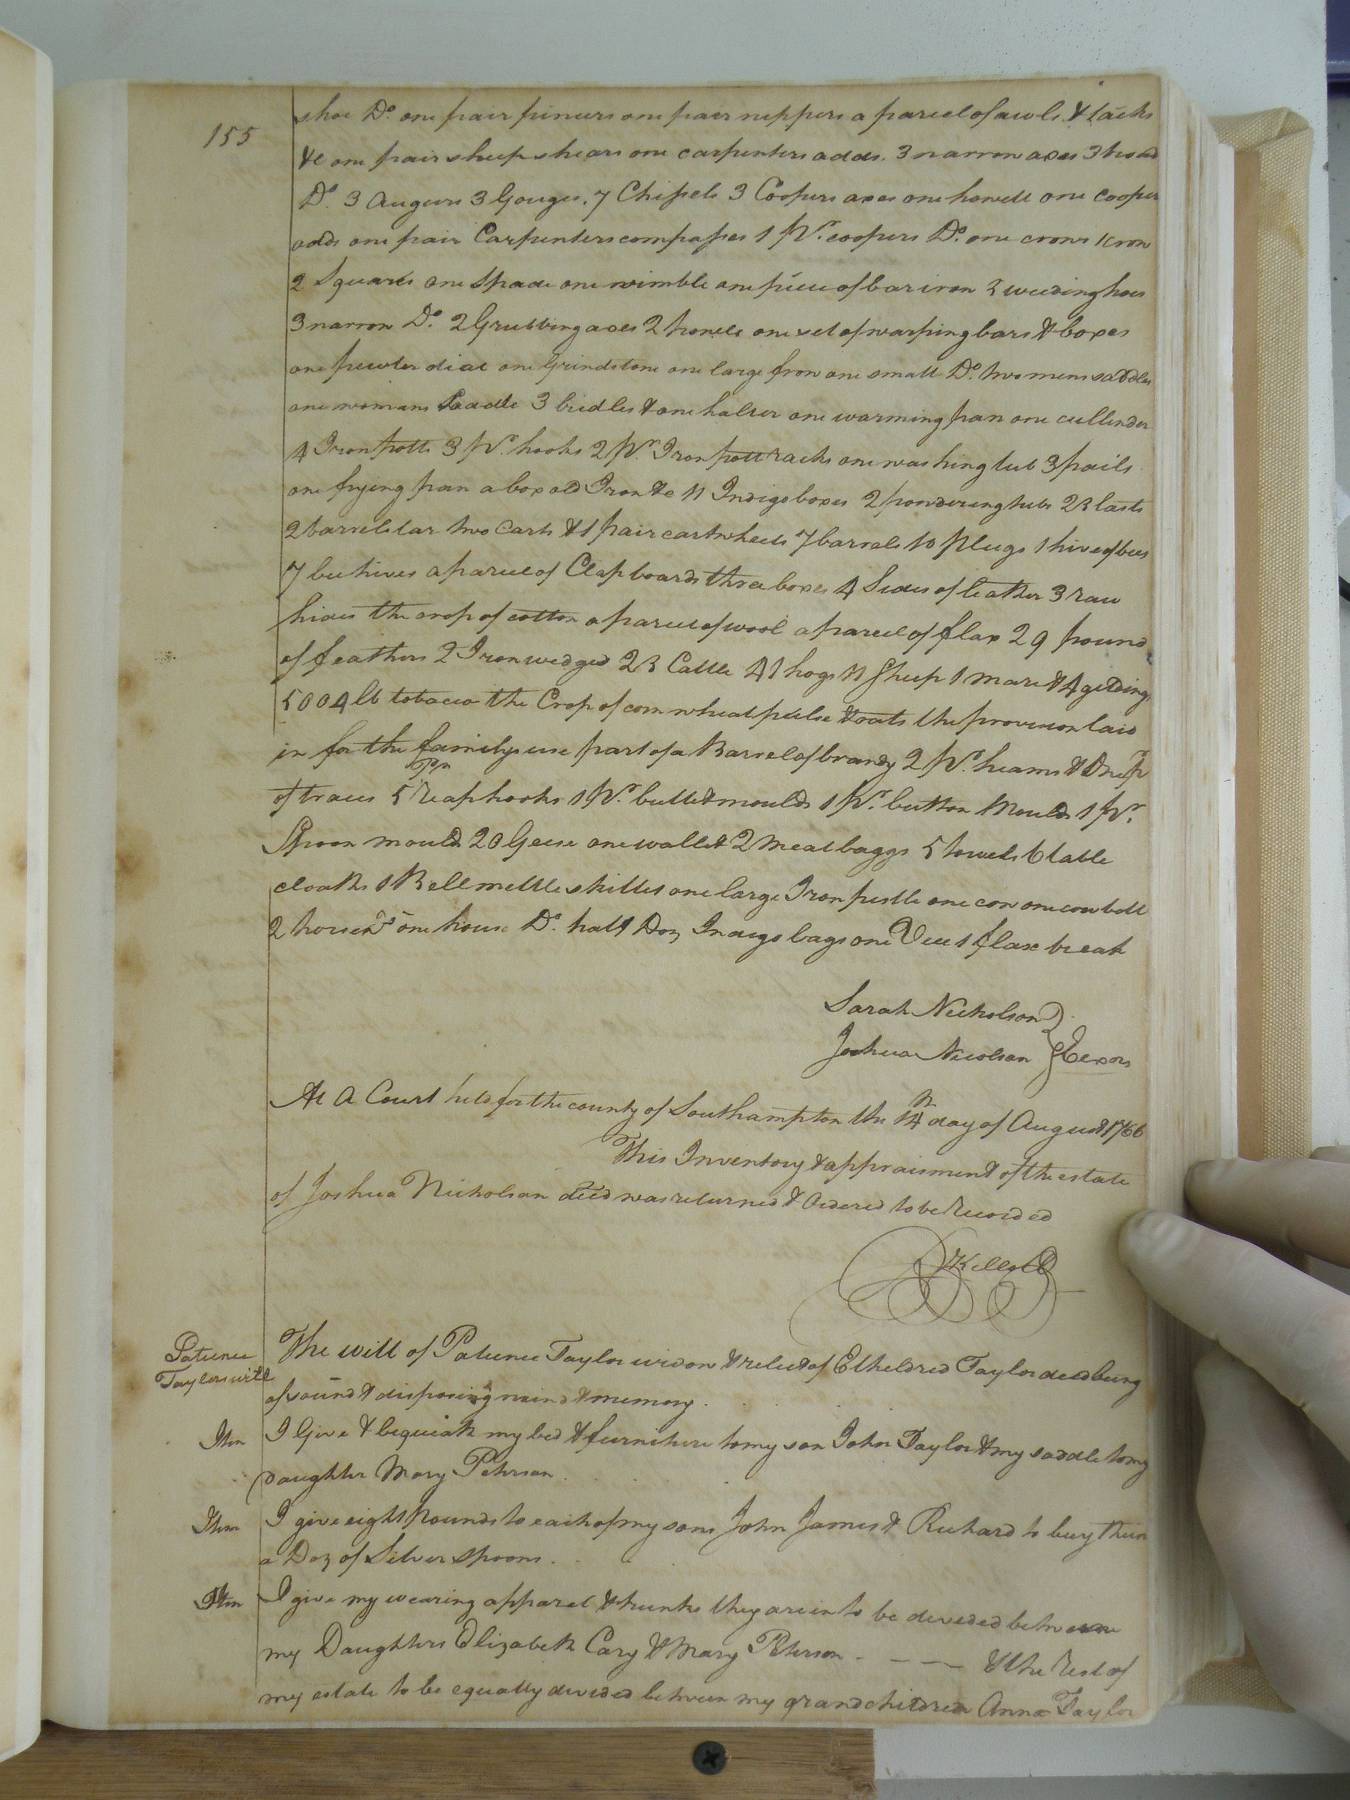 155
shoe Do. one pair pincers one pair nippers a parcel of awls & tacks
&c one pair sheep shears one carpenters adds. 3 narrow axes 3 broad
Do. 3 Augurs 3 Gouges. 7 Chissels 3 Coopers axes one howell one cooper
adds one pair Carpenters compasses 1 Pr. coopers Do. one crows iron
2 Squares one Spade one wimble one piece of bar iron 3 weeding hoes
3 narrow Do. 2 Grubbing axes 2 howels one set of warping bars & boxes
one pewter dial one Grindstone one large frow one small Do. two mens saddles
one womans Saddle 3 bridles & one halter one warming pan one cullinder
4 Iron potts 3 Pr. hooks 2 Pr. Iron pott racks one washing tub 3 pails
one frying pan a box old Iron &c 11 Indigo boxes 2 powdering tubs 23 lasts
2 barrels tar two Carts & 1 pair cart wheels 7 barrels 10 Plugs 1 hive of bees
7 bee hives a parcel of Clap boards three boxes 4 Sides of leather 3 raw
hides the crop of cotton a parcel of wool a parcel of flax 29 pound
of feathers 2 Iron wedged 23 Cattle 41 hogs 11 Sheep 1 mare & 4 geldings
5004 lb tobacco the Crop of corn wheat pulse & oats the provision laid
in for the familys use part of a Barrel of brandy 2 Pr. heams & One pr
of traces 5 Pr reap hooks 1 Pr. bullet moulds 1 Pr. button Moulds 1 Pr.
Spoon mould 20 Geese one wallet 2 Meal baggs 5 towels 6 table
cloaths 1 Bell mettle skillet one large Iron pestle one cow one cow bell
2 horse Do one house Do. half Doz Indigo bags one Vice 1 flax break
Sarah Nicholson }
Joshua Nicolson } Exors
At A Court held for the county of Southampton the 14th day of August 1766
This Inventory & appraisment of the estate
of Joshua Nicholson decd was returned & Ordered to be Recorded
R Kello CC
Patience
Taylors will
The will of Patience Taylor widow & relict of Etheldred Taylor decd being
of sound & disposing mind & memory.
Itm
I Give & bequeath my bed & furniture to my son John Taylor & my saddle to my
Daughter Mary Peterson.
Item
I give eight Pounds to each of my sons John James & Richard to buy them
a Doz of Silver spoons.
Item
I give my wearing apparel & trunks they are in to be devided between
my Daughters Elizabeth Cary & Mary Peterson - - - - & the Rest of
my estate to be equally devided between my grandchildren Anna Taylor